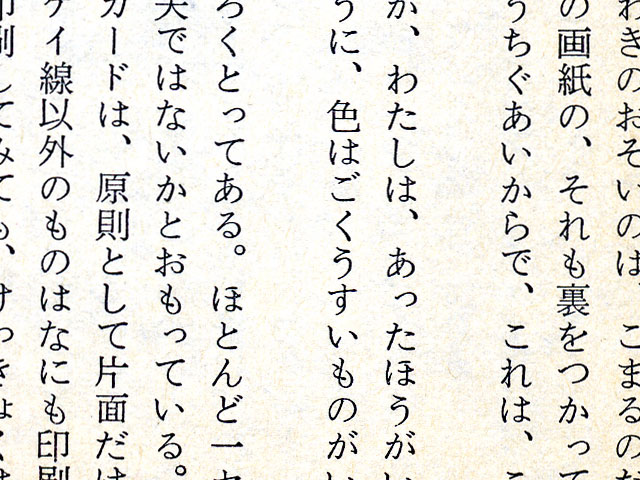 わきのおそいのは、こまるのだ
の画紙の、それも裏をつかって
うちぐあいからで、これは、こ
か、わたしは、あったほうがい
うに、色はごくうすいものがい
ろくとってある。ほとんど一セ
夫ではないかとおもっている。
カードは、原則として片面だけ
ケイ線以外のものはなにも印刷
印刷してみても、けっきょくは